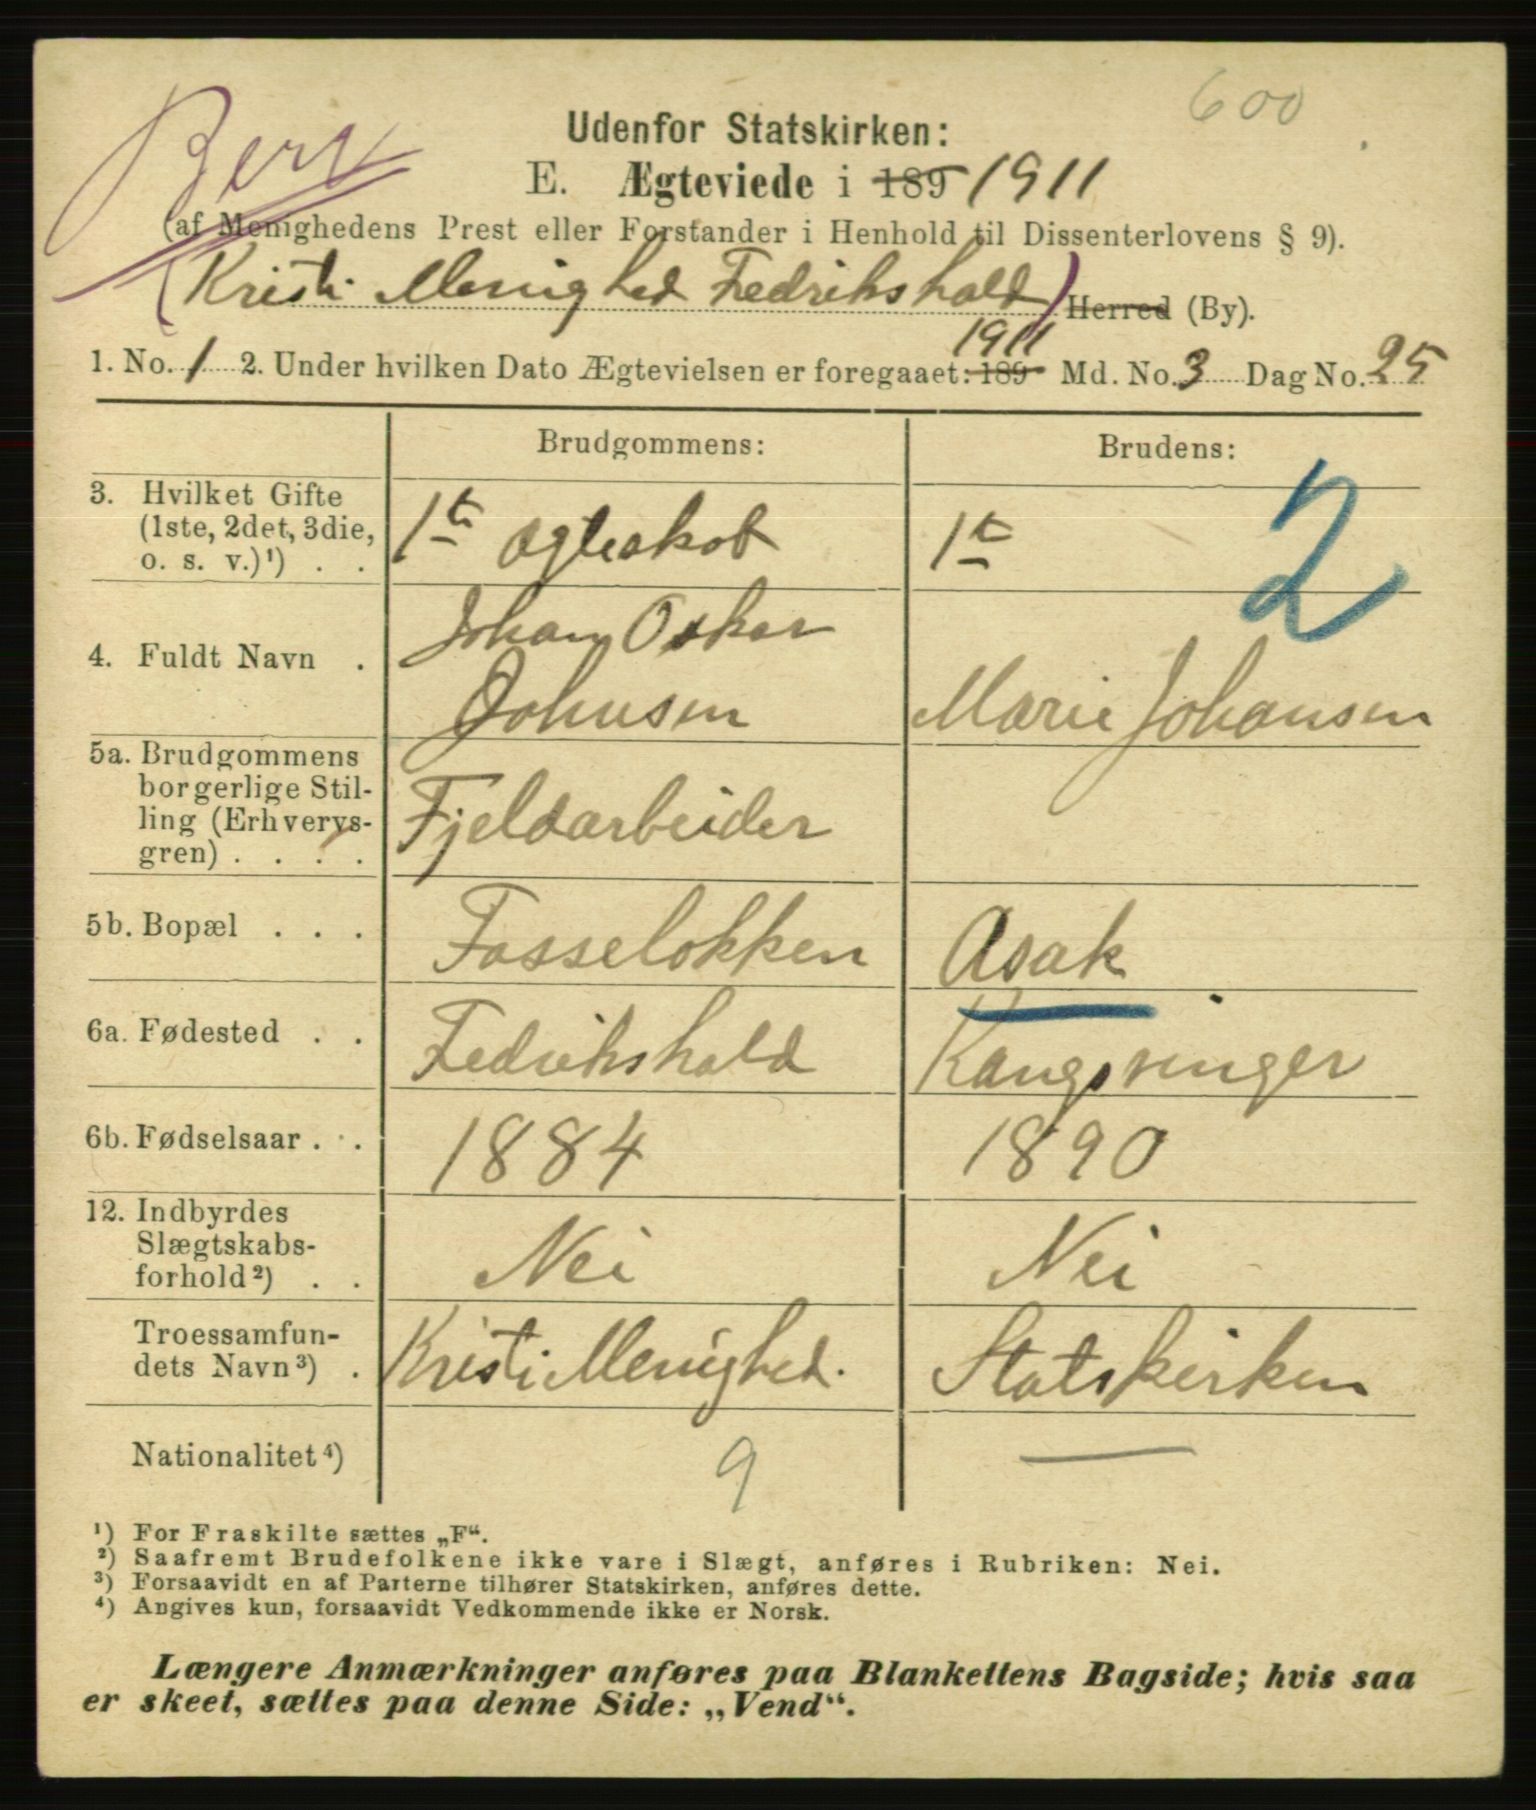 600
Berg
Udenfor Statskirken:
E. Ægteviede i 189 1911
(af Menighedens Prest eller Forstander i Henhold til Dissenterlovens § 9).
(Kristi Menighed Fedrikshald) Herred (By).
1911
1. No. 1 2. Under hvilken Dato Ægtevielsen er foregaaet: 189 Md. No. 3 Dag No. 25
Brudgommens: Brudens:
3. Hvilket Gifte (1ste, 2det, 3die, o. s. v.)¹) . .
1te Ogteskab
1te
2
4. Fuldt Navn .
Johan Oskar
Johnsen
Marie Johansen
5a. Brudgommens
borgerlige Stil-
ling (Erhvervs-
gren) . . . .
Fjeldarbeider
5b. Bopæl . . .
Fosseløkken
Asak
6a. Fødested . .
Fedrikshald
Kongsvinger
6b. Fødselsaar . . .
1884
1890
12. Indbyrdes
Slægtskabs-
forhold²) . .
Nei
Nei
Troessamfun-
dets Navn³) .
Kristi Menighed.
Statskirken
Nationalitet⁴)
9
¹) For Fraskilte sættes „F“.
²) Saafremt Brudefolkene ikke vare i Slægt, anføres i Rubriken: Nei.
³) Forsaavidt en af Parterne tilhører Statskirken, anføres dette.
⁴) Angives kun, forsaavidt Vedkommende ikke er Norsk.
Længere Anmærkninger anføres paa Blankettens Bagside; hvis saa
er skeet, sættes paa denne Side: „Vend“.